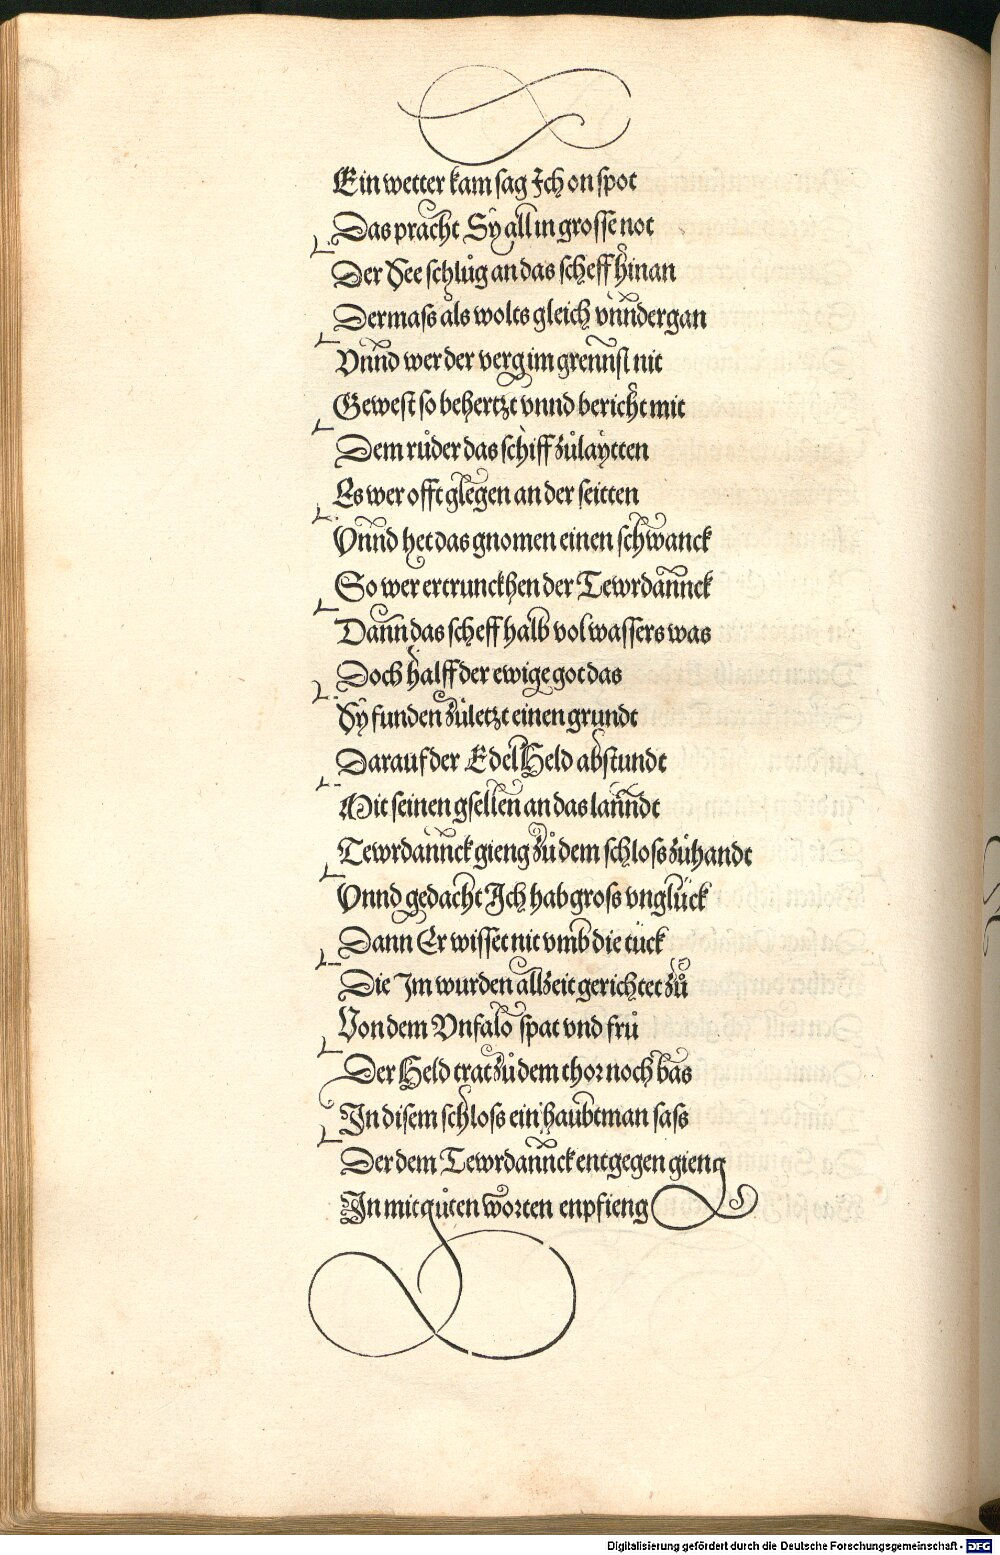 Ein wetter kam sag Ich on spot
Das pracht Sy all in grosse not
Der See schlůg an das scheff hinan
Dermaſs als wolts gleich vnndergan
Vnnd wer der verg im grennsl nit
Gewest so behertzt vnnd bericht mit
Dem růder das schiff zůlaytten
Es wer offt glegen an der seitten
Vnnd het das gnomen einen schwanck
So wer ertrunckhen der Tewrdannck
Dann das scheff halb vol wassers was
Doch halff der ewige got das
Sy funden zůletzt einen grundt
Darauf der Edel Held abstundt
Mit seinen gsellen an das lanndt
Tewrdannck gieng zů dem schloss zůhandt
Vnnd gedacht Ich hab gross vnglück
Dann Er wisset nit vmb die tück
Die Im wurden allzeit gerichtet zů
Von dem Vnfalo spat vnd frů
Der Held trat zů dem thor noch bas
In disem schloss ein haubtman sass
Der dem Tewrdannck entgegen gieng
In mit gůten worten enpfieng
Digitalisierung gefördert durch die Deutsche Forschungsgemeinschaft - DFG